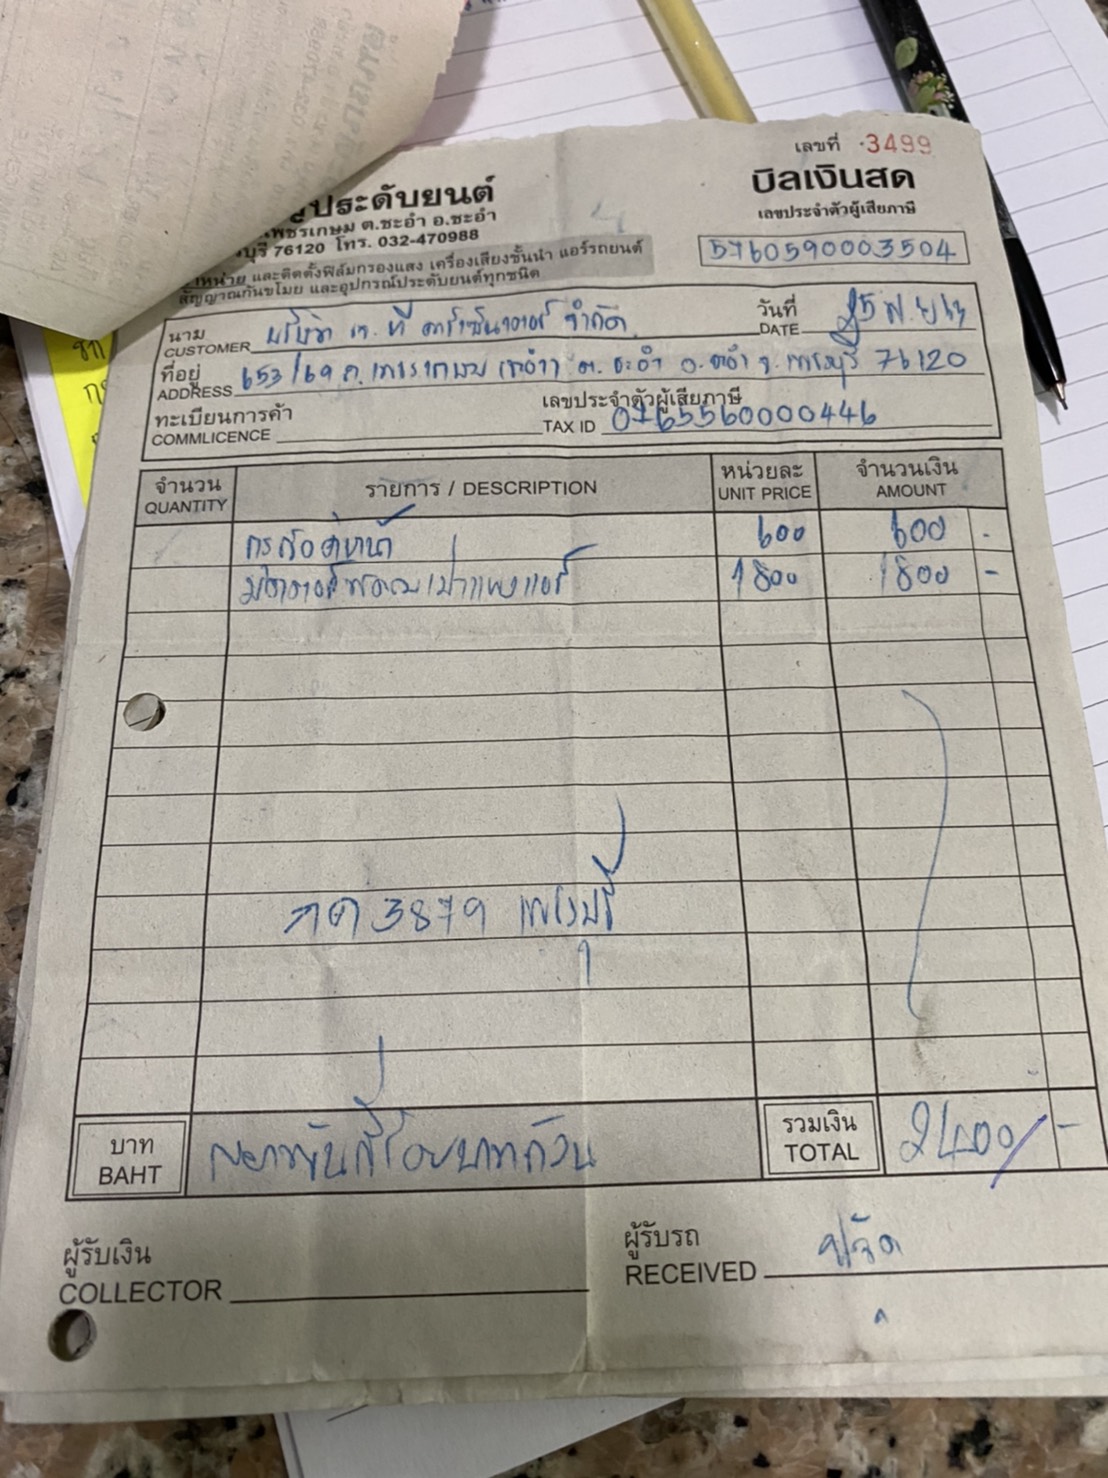 เลขที่ 3499
ประดับยนต์
บิลเงินสด
เพชรเกษม ต.ชะอำ อ.ชะอำ
เลขประจำตัวผู้เสียภาษี
บุรี 76120 โทร. 032-470988
5760590003504
และติดตั้งฟิล์มกรองแสง เครื่องเสียงชั้นนำ แอร์รถยนต์
สัญญาณกันขโมย และอุปกรณ์ประดับยนต์ทุกชนิด
นาม บริษัท จำกัด
CUSTOMER
วันที่ 25 พ.ย 63
DATE
ที่อยู่ 653/69 ถ.เพชรเกษม ต.ชะอำ อ.ชะอำ จ.เพชรบุรี 76120
ADDRESS
ทะเบียนการค้า
COMMLICENCE
เลขประจำตัวผู้เสียภาษี
TAX ID 0765560000446
จำนวน
QUANTITY
รายการ / DESCRIPTION
หน่วยละ
UNIT PRICE
จำนวนเงิน
AMOUNT
600 600 -
1800 1800 -
3879 เพชรบุรี
บาท
BAHT
สองพันสี่ร้อยบาทถ้วน
รวมเงิน
TOTAL
2400 -
ผู้รับเงิน
COLLECTOR
ผู้รับรถ
RECEIVED